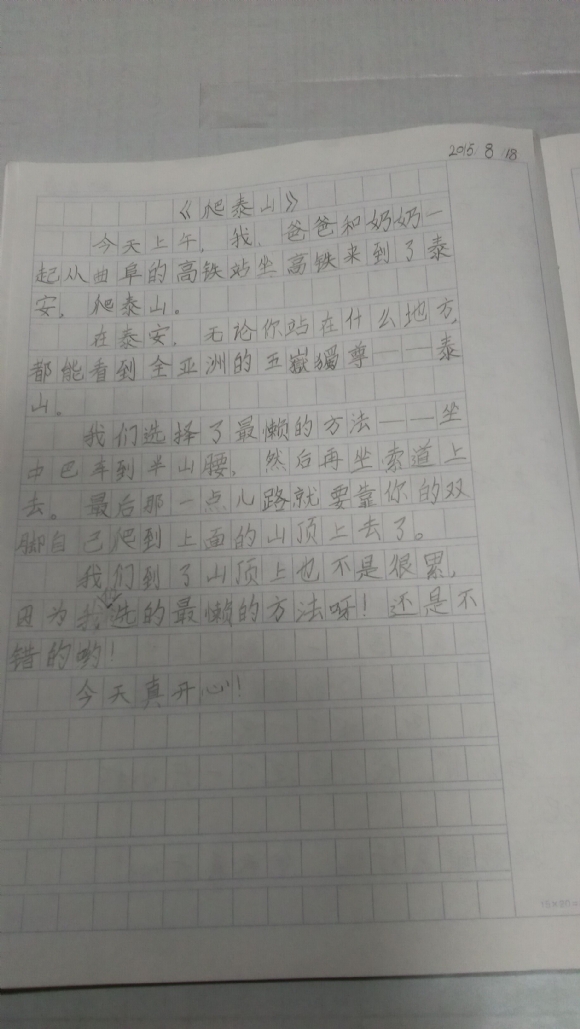 2015 8 18
《爬泰山》
今天上午，我，爸爸和奶奶一
起从曲阜的高铁站坐高铁来到了泰
安，爬泰山。
在泰安，无论你站在什么地方，
都能看到全亚洲的五嶽獨尊——泰
山。
我们选择了最懒的方法——坐
中巴车到半山腰，然后再坐索道上
去。最后那一点儿路就要靠你的双
脚自己爬到上面的山顶上去了。
我们到了山顶上也不是很累，
因为我选的最懒的方法呀！还是不
错的哟！
今天真开心！